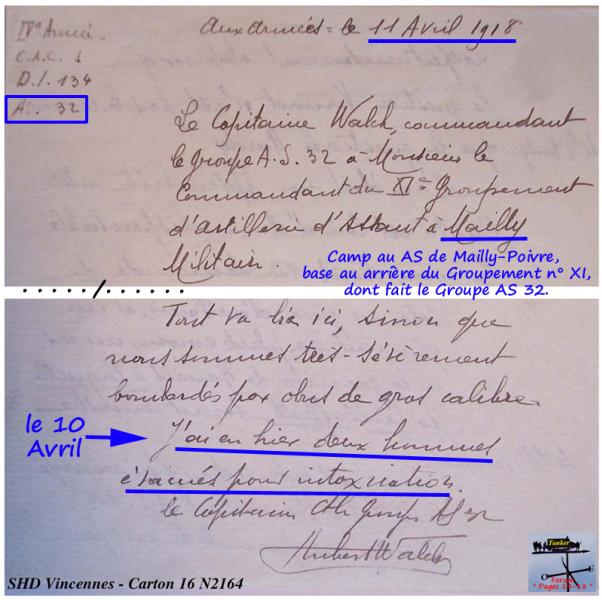 IVe Armée
C.A.C. 1
D.I. 134
AS. 32
Aux armées = le 11 Avril 1918
Le Capitaine Walch, commandant
le groupe A.S. 32 à Monsieur le
Commandant du XIe Groupement
d'artillerie d'Assaut à Mailly
Militaire.
Camp au AS de Mailly-Poivre,
base au arrière du Groupement n° XI,
dont fait le Groupe AS 32.
...../......
Tout va bien ici, sinon que
nous sommes très-sévèrement
bombardés par obus de gros calibre.
le 10
Avril
J'ai eu hier deux hommes
évacués pour intoxication.
le Capitaine Ct le groupe AS 32
Hubert Walch
SHD Vincennes - Carton 16 N2164
Tanker
O E
Forum
" Pages 14-18 "